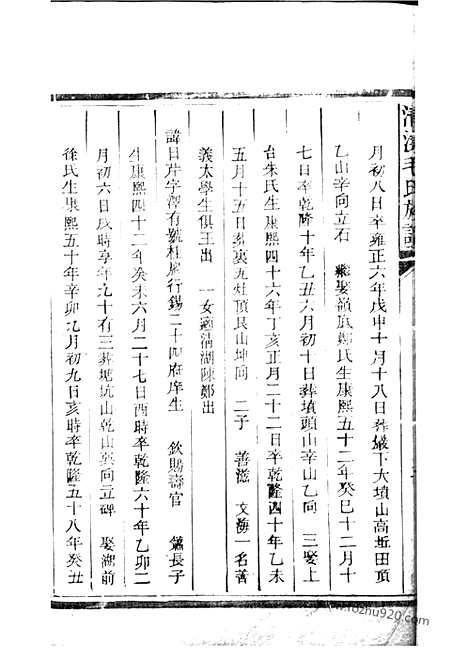 清溪毛氏族譜
月初八日卒雍正六年戊申十月十八日葬嚴下大墳山高坵田頂
乙山辛向立石 繼娶嶺底鄭氏生康熙五十二年癸巳十二月十
七日卒乾隆十年乙丑六月初十日葬墳頭山辛山乙向 三娶上
台朱氏生康熙四十六年丁亥正月二十二日卒乾隆四十年乙未
五月十五日葬東九灶頂艮山坤向 二子 善滋 文海一名善
義太學生俱王出 一女適清湖陳鄭出
諱日芹字澤有號桂 行錫二十四府庠生 欽賜壽官 長子
生康熙四十二年癸未六月二十七日酉時卒乾隆六十年乙卯二
月初六日戌時享年九十有三葬塘坑山乾山巽向立碑 娶湖前
徐氏生康熙五十年辛卯九月初九日亥時卒乾隆五十八年癸丑
www.fozhu920.com